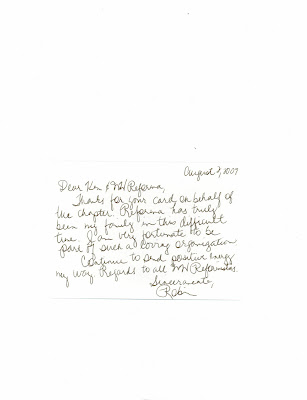 August 3, 2007
Dear Ken & NW Reforma,
Thanks for your card on behalf of
the chapter. Reforma has truly
been my family in this difficult
time. I am very fortunate to be
part of such a loving organization
Continue to send positive energy
my way. Regards to all NW Reformistas.
Sinceramente,
Robin